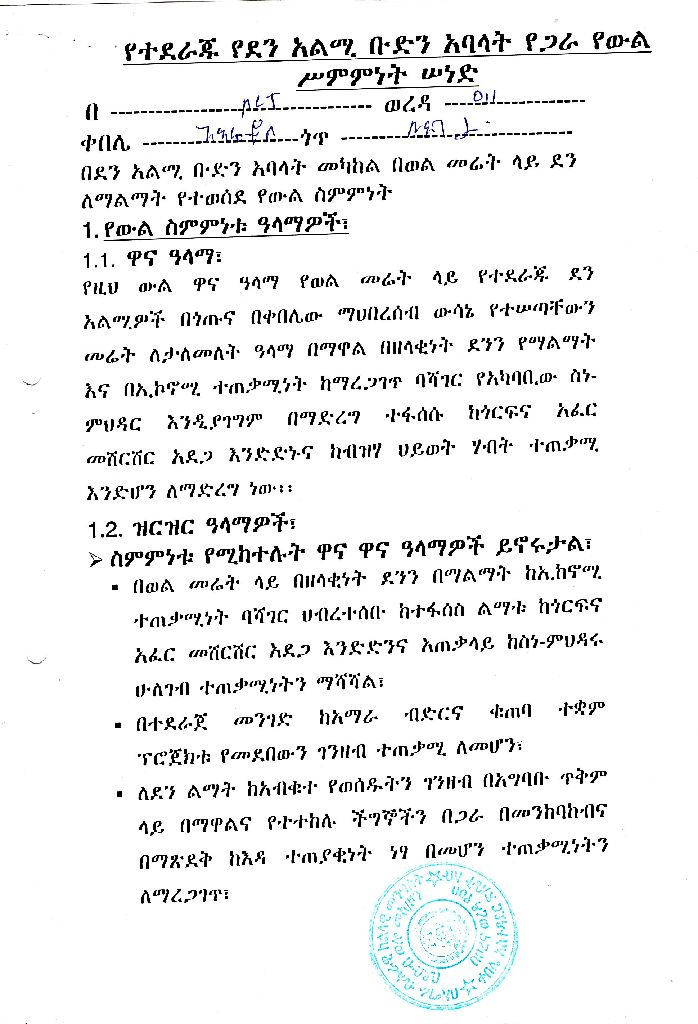 የተደራጁ የደን አልሚ ቡድን አባላት የጋራ የውል
ሥምምነት ሠነድ
በ ---------------------------------- ወረዳ -------------------
ቀበሌ --------------------- ጎጥ -------------------------------
በደን አልሚ ቡድን አባላት መካከል በወል መሬት ላይ ደን
ለማልማት የተወሰደ የውል ስምምነት
1. የውል ስምምነቱ ዓላማዎች፣
1.1. ዋና ዓላማ፣
የዚህ ውል ዋና ዓላማ የወል መሬት ላይ የተደራጁ ደን
አልሚዎች በጎጡና በቀበሌው ማህበረሰብ ውሳኔ የተሠጣቸውን
መሬት ለታለመለት ዓላማ በማዋል በዘላቂነት ደንን የማልማት
እና በኢኮኖሚ ተጠቃሚነት ከማረጋገጥ ባሻገር የአካባቢው ስነ-
ምህዳር እንዲያገግም በማድረግ ተፋሰሱ ከጎርፍና አፈር
መሸርሸር አደጋ እንድድኑና ከብዝሃ ህይወት ሃብት ተጠቃሚ
እንድሆን ለማድረግ ነው፡፡
1.2. ዝርዝር ዓላማዎች፣
➢ ስምምነቱ የሚከተሉት ዋና ዋና ዓላማዎች ይኖሩታል፣
▪ በወል መሬት ላይ በዘላቂነት ደንን በማልማት ከኢከኖሚ
ተጠቃሚነት ባሻገር ህብረተሰቡ ከተፋሰስ ልማቱ ከጎርፍና
አፈር መሸርሸር አደጋ እንድድንና አጠቃላይ ከስነ-ምህዳሩ
ሁለገብ ተጠቃሚነትን ማሻሻል፣
▪ በተደራጀ መንገድ ከአማራ ብድርና ቁጠባ ተቋም
ፕሮጀክቱ የመደበውን ገንዘብ ተጠቃሚ ለመሆን፣
▪ ለደን ልማት ከአብቁተ የወሰዱትን ገንዘብ በአግባቡ ጥቅም
ላይ በማዋልና የተተከሉ ችግኞችን በጋራ በመንከባከብና
በማጽደቅ ከእዳ ተጠያቂነት ነፃ በመሆን ተጠቃሚነትን
ለማረጋገጥ፣